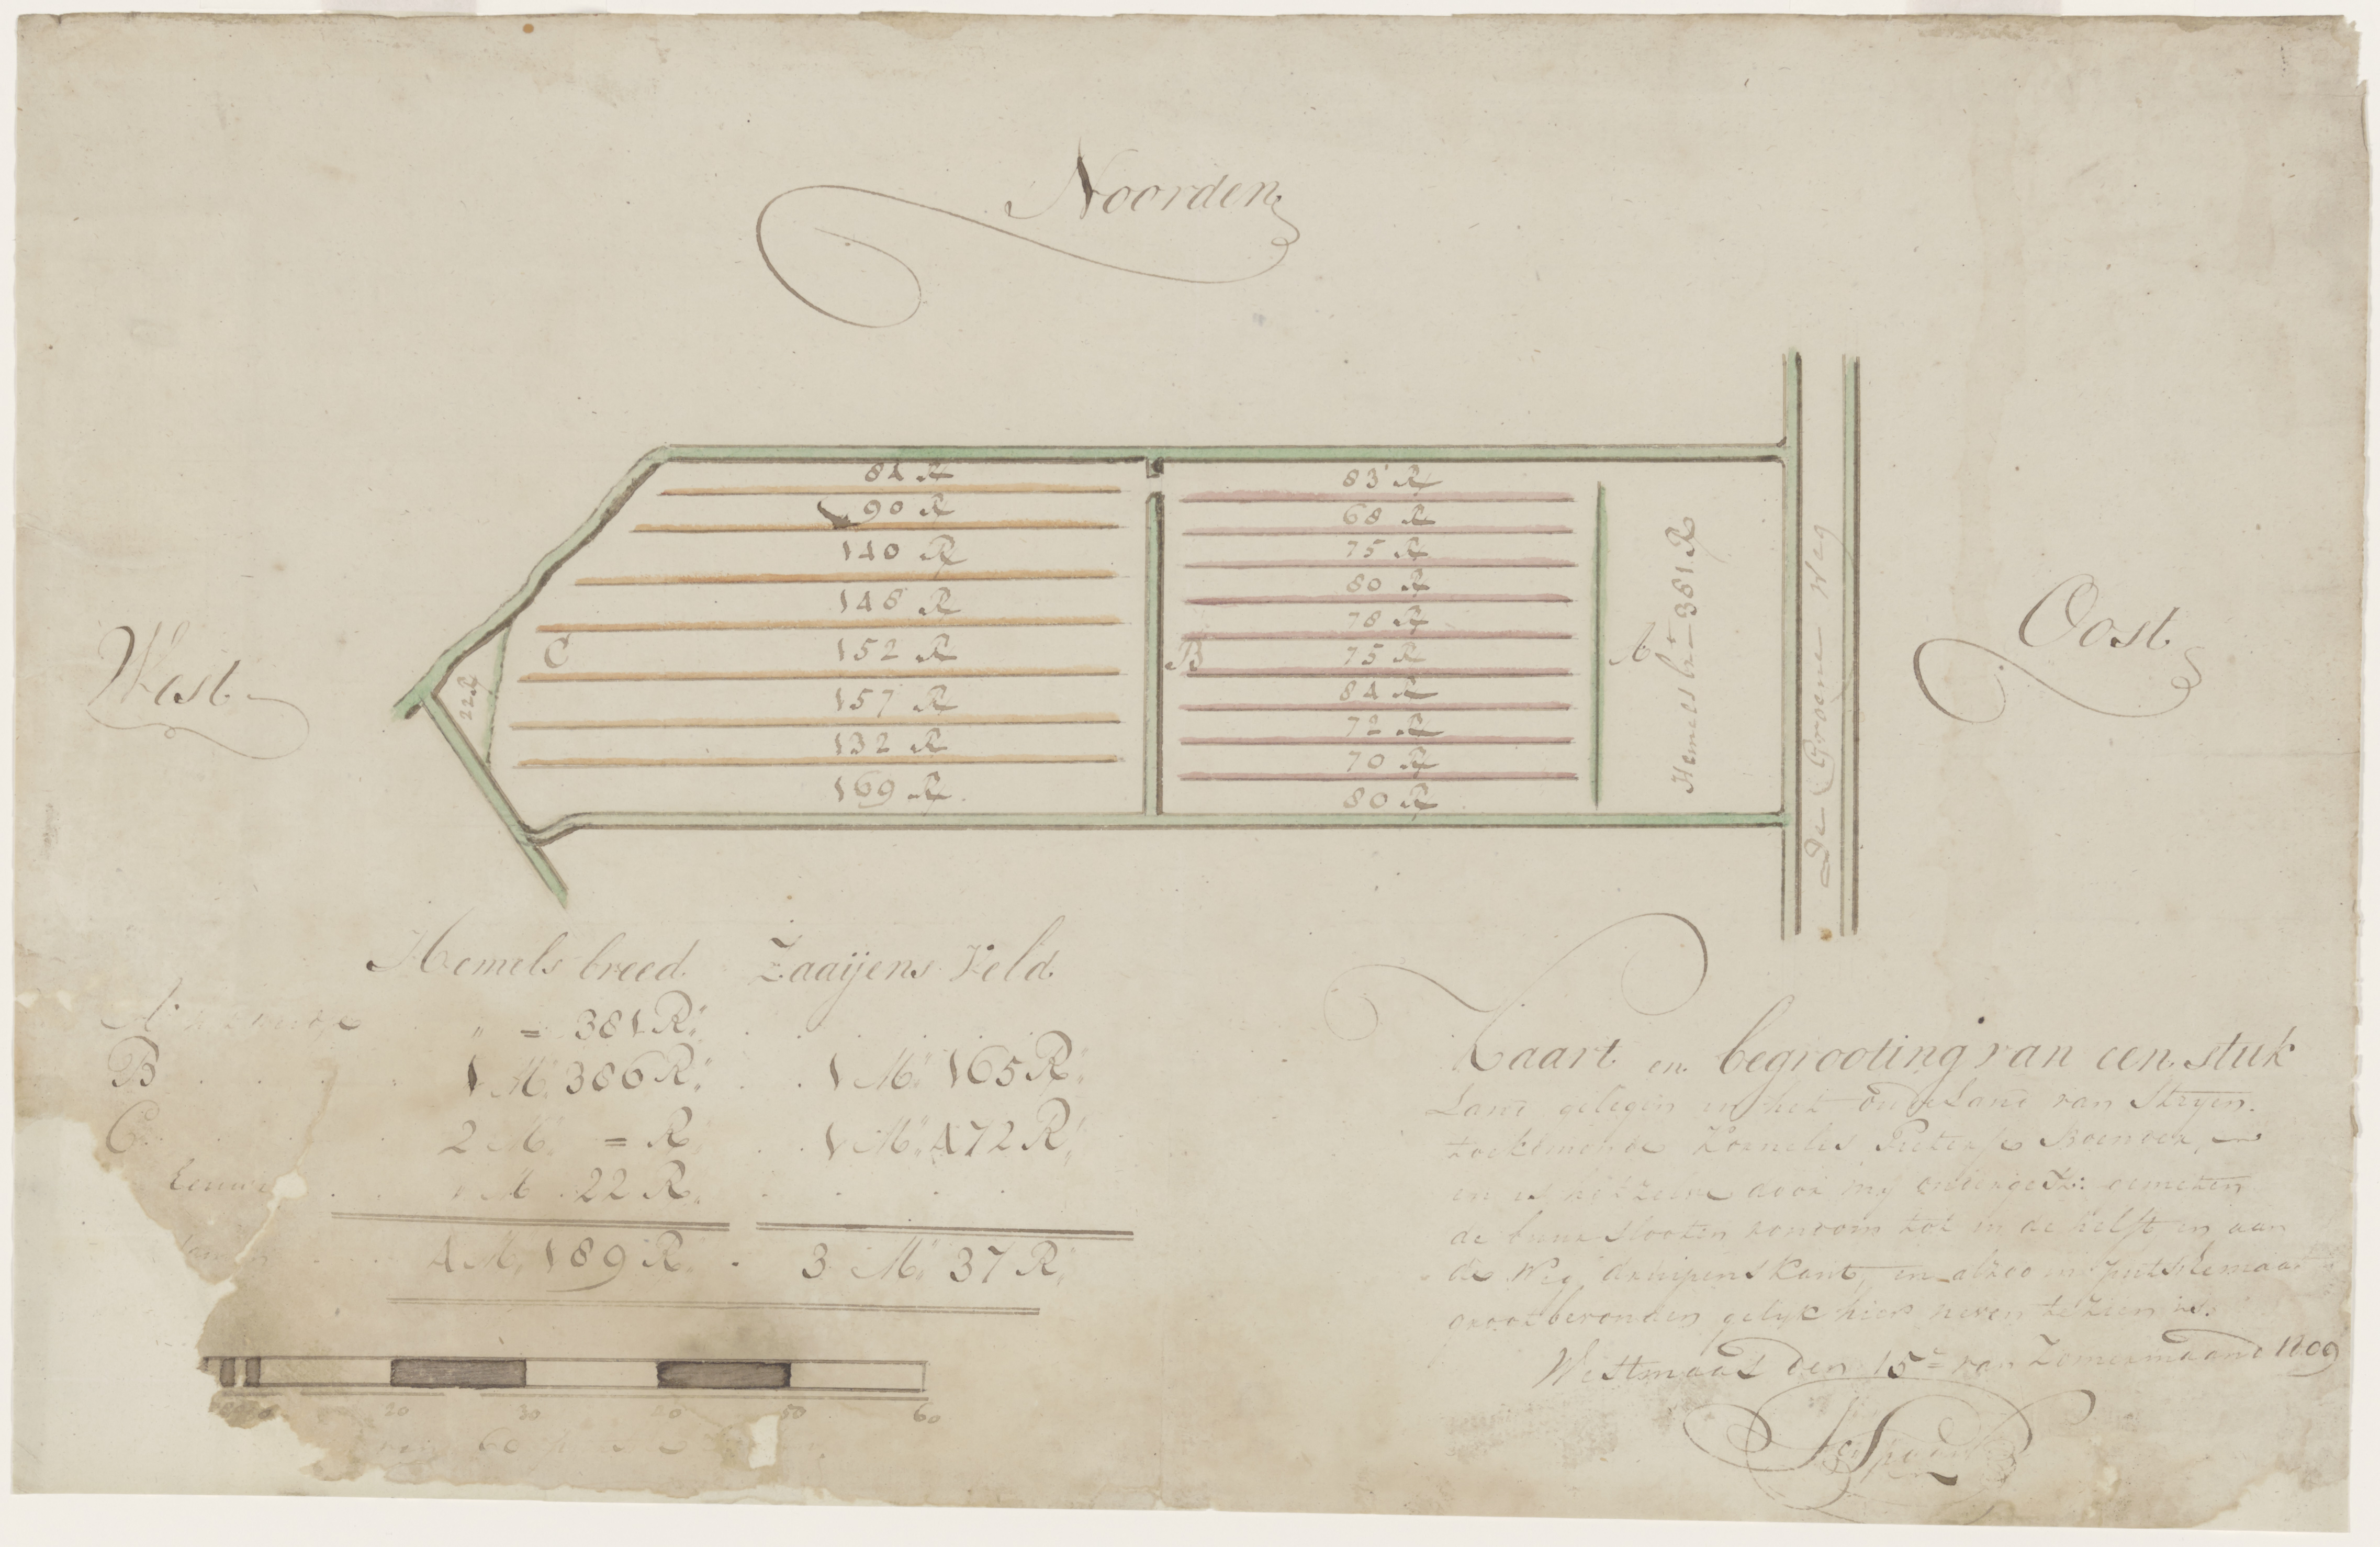 Noorden
West
Oost
84 R
90 R
140 R
148 R
152 R
157 R
132 R
169 R
C
22 R
83 R
68 R
75 R
80 R
78 R
75 R
84 R
72 R
70 R
80 R
B
A
Hemels br 381 R
De Groene Weg
Hemels breed Zaaijens Veld
A " = 381 R:
B 1 M: 386 R: 1 M: 165 R:
C 2 M: = R: 1 M: 472 R:
22 R:
4 M: 189 R: 3 M: 37 R:
20 30 40 50 60
Kaart en begrooting van een stuk
Land gelegen in het oude Land van Stryen
Kornelis Pieterse
en is hetzelve door my onderget: gemeten
de buur slooten rondom tot in de helft en aan
de Weg kant, en alzoo in putsche maat
groot bevonden gelyk hier neven te zien is.
Westmaas den 15e van Zomermaand 1809